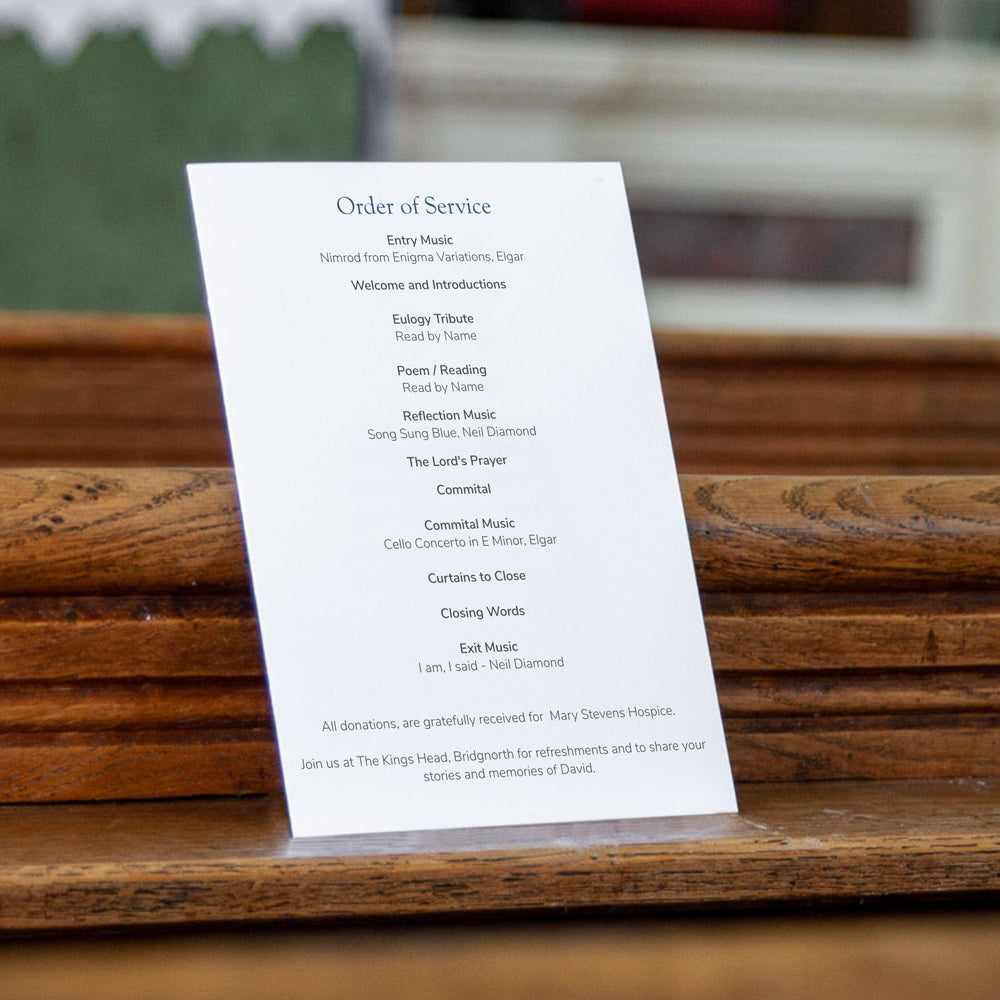 Order of Service
Entry Music
Nimrod from Enigma Variations, Elgar
Welcome and Introductions
Eulogy Tribute
Read by Name
Poem / Reading
Read by Name
Reflection Music
Song Sung Blue, Neil Diamond
The Lord's Prayer
Commital
Commital Music
Cello Concerto in E Minor, Elgar
Curtains to Close
Closing Words
Exit Music
I am, I said - Neil Diamond
All donations, are gratefully received for Mary Stevens Hospice.
Join us at The Kings Head, Bridgnorth for refreshments and to share your
stories and memories of David.